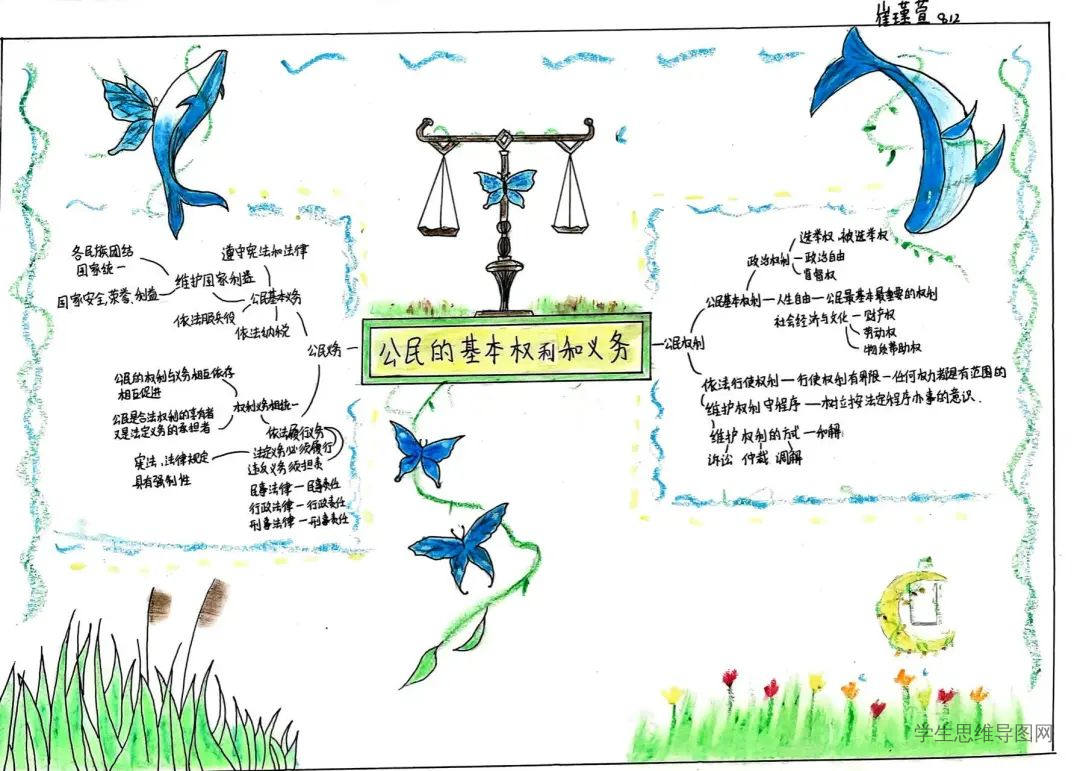 崔瑾萱 812
公民的基本权利和义务
各民族团结
国家统一
遵守宪法和法律
维护国家利益
国家安全,荣誉,利益
公民基本义务
依法服兵役
依法纳税
公民义务
公民的权利与义务相互依存
相互促进
公民是合法权利的享有者
又是法定义务的承担者
权利义务相统一
依法履行义务
法定义务必须履行
违反义务须担责
宪法、法律规定
具有强制性
民事法律一民事责任
行政法律一行政责任
刑事法律一刑事责任
公民权利
公民基本权利一人生自由一公民最基本最重要的权利
政治权利
选举权、被选举权
政治自由
监督权
社会经济与文化
财产权
劳动权
物质帮助权
依法行使权利一行使权利有界限一任何权力都是有范围的
维护权利守程序一树立按法定程序办事的意识.
维护权利的方式一和解
诉讼 仲裁 调解
学生思维导图网